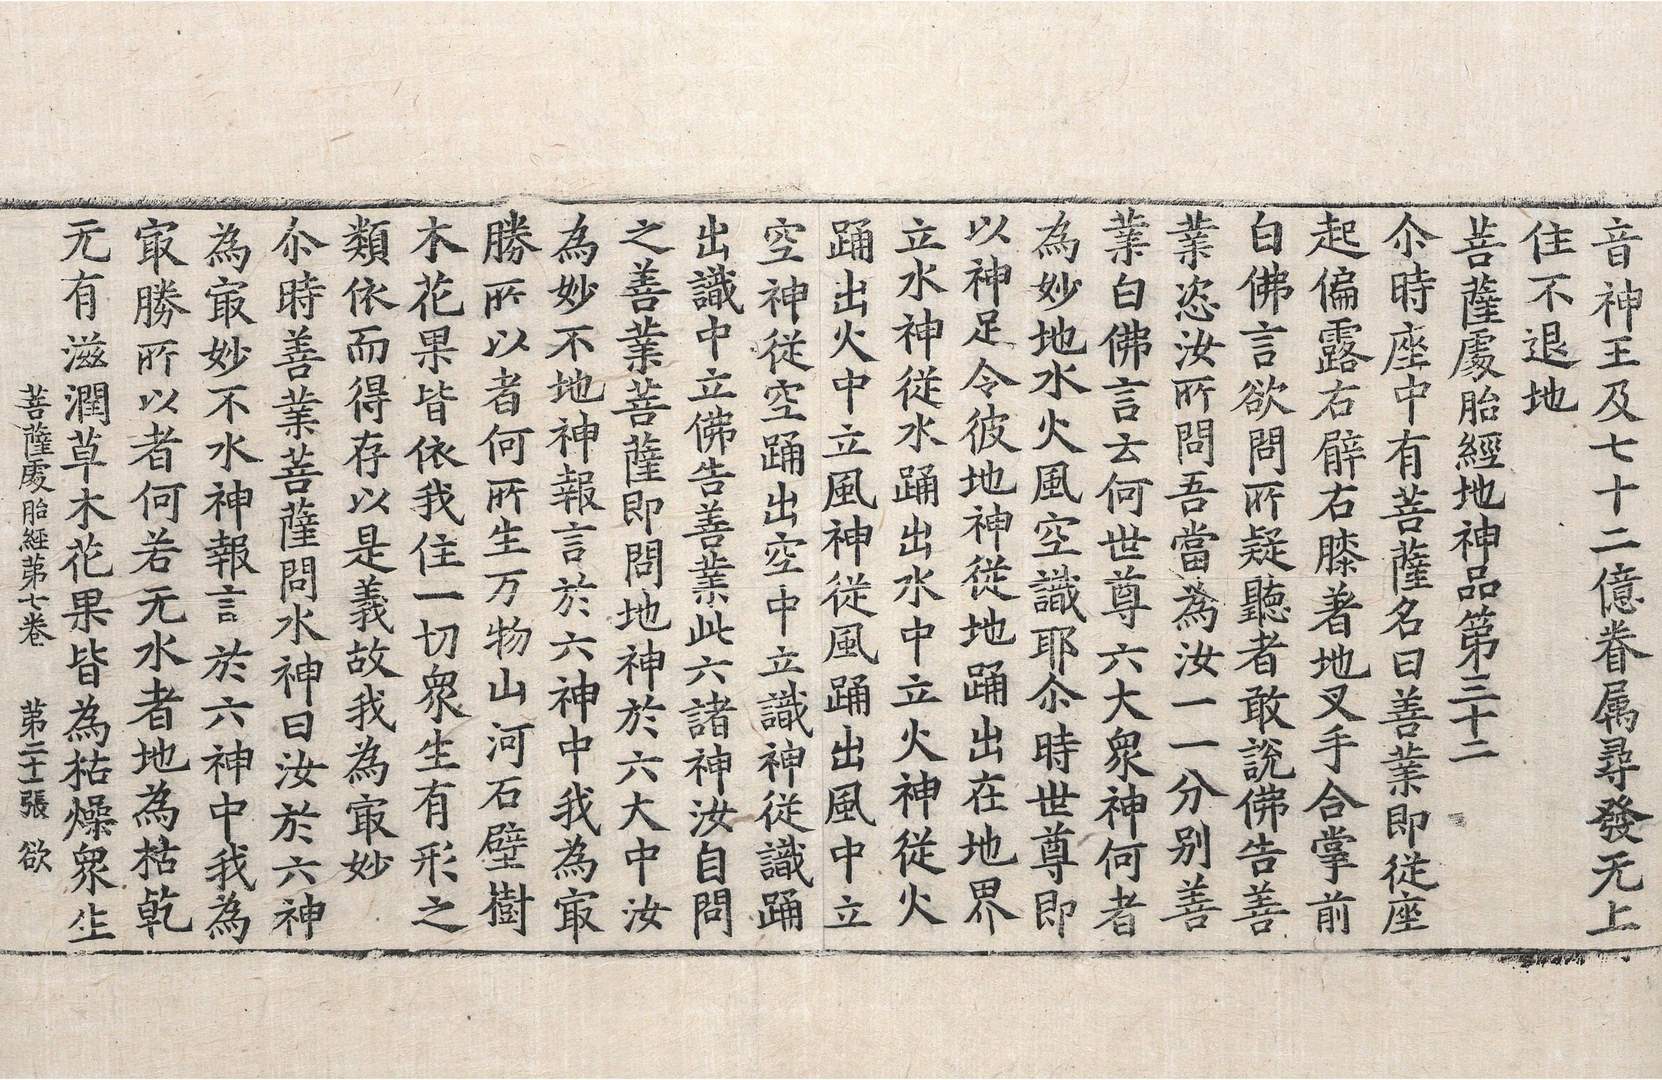 音神王及七十二億眷属尋發无上
住不退地
菩薩處胎經地神品第三十二
尒時座中有菩薩名曰善業即從座
起偏露右臂右膝著地叉手合掌前
白佛言欲問所疑聽者敢說佛告善
業恣汝所問吾當為汝一一分別善
業白佛言云何世尊六大衆神何者
為妙地水火風空識耶尒時世尊即
以神足令彼地神從地踊出在地界
立水神從水踊出水中立火神從火
踊出火中立風神從風踊出風中立
空神從空踊出空中立識神從識踊
出識中立佛告善業此六諸神汝自問
之善業菩薩即問地神於六大中汝
為妙不地神報言於六神中我為㝡
勝所以者何所生万物山河石壁樹
木花果皆依我住一切衆生有形之
類依而得存以是義故我為㝡妙
尒時善業菩薩問水神曰汝於六神
為㝡妙不水神報言於六神中我為
㝡勝所以者何若无水者地為枯乾
无有滋潤草木花果皆為枯燥衆生
菩薩處胎經第七卷　第二十張　欲